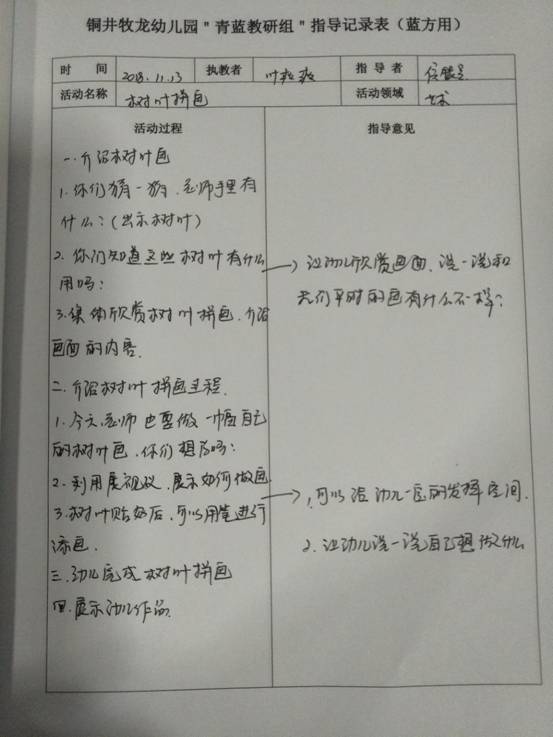 铜井牧龙幼儿园＂青蓝教研组＂指导记录表（蓝方用）
时 间 2018.11.13 执教者 叶 指导者
活动名称 树叶拼画 活动领域 艺术
活动过程
一.介绍树叶画
1.你们猜一猜.老师手里有
什么？(出示树叶)
2.你们知道这些树叶有什么
用吗？
3.集体欣赏树叶拼画.介绍
画面的内容.
二.介绍树叶拼画过程.
1.今天.老师也要做一幅自己
的树叶画.你们想看吗？
2.利用展视仪.展示如何做画
3.树叶贴好后.可以用笔进行
添画.
三.幼儿完成树叶拼画
四.展示幼儿作品
指导意见
让幼儿欣赏画面.说一说和
我们平时的画有什么不一样？
1.可以给幼儿一定的发挥空间.
2.让幼儿说一说自己想做什么